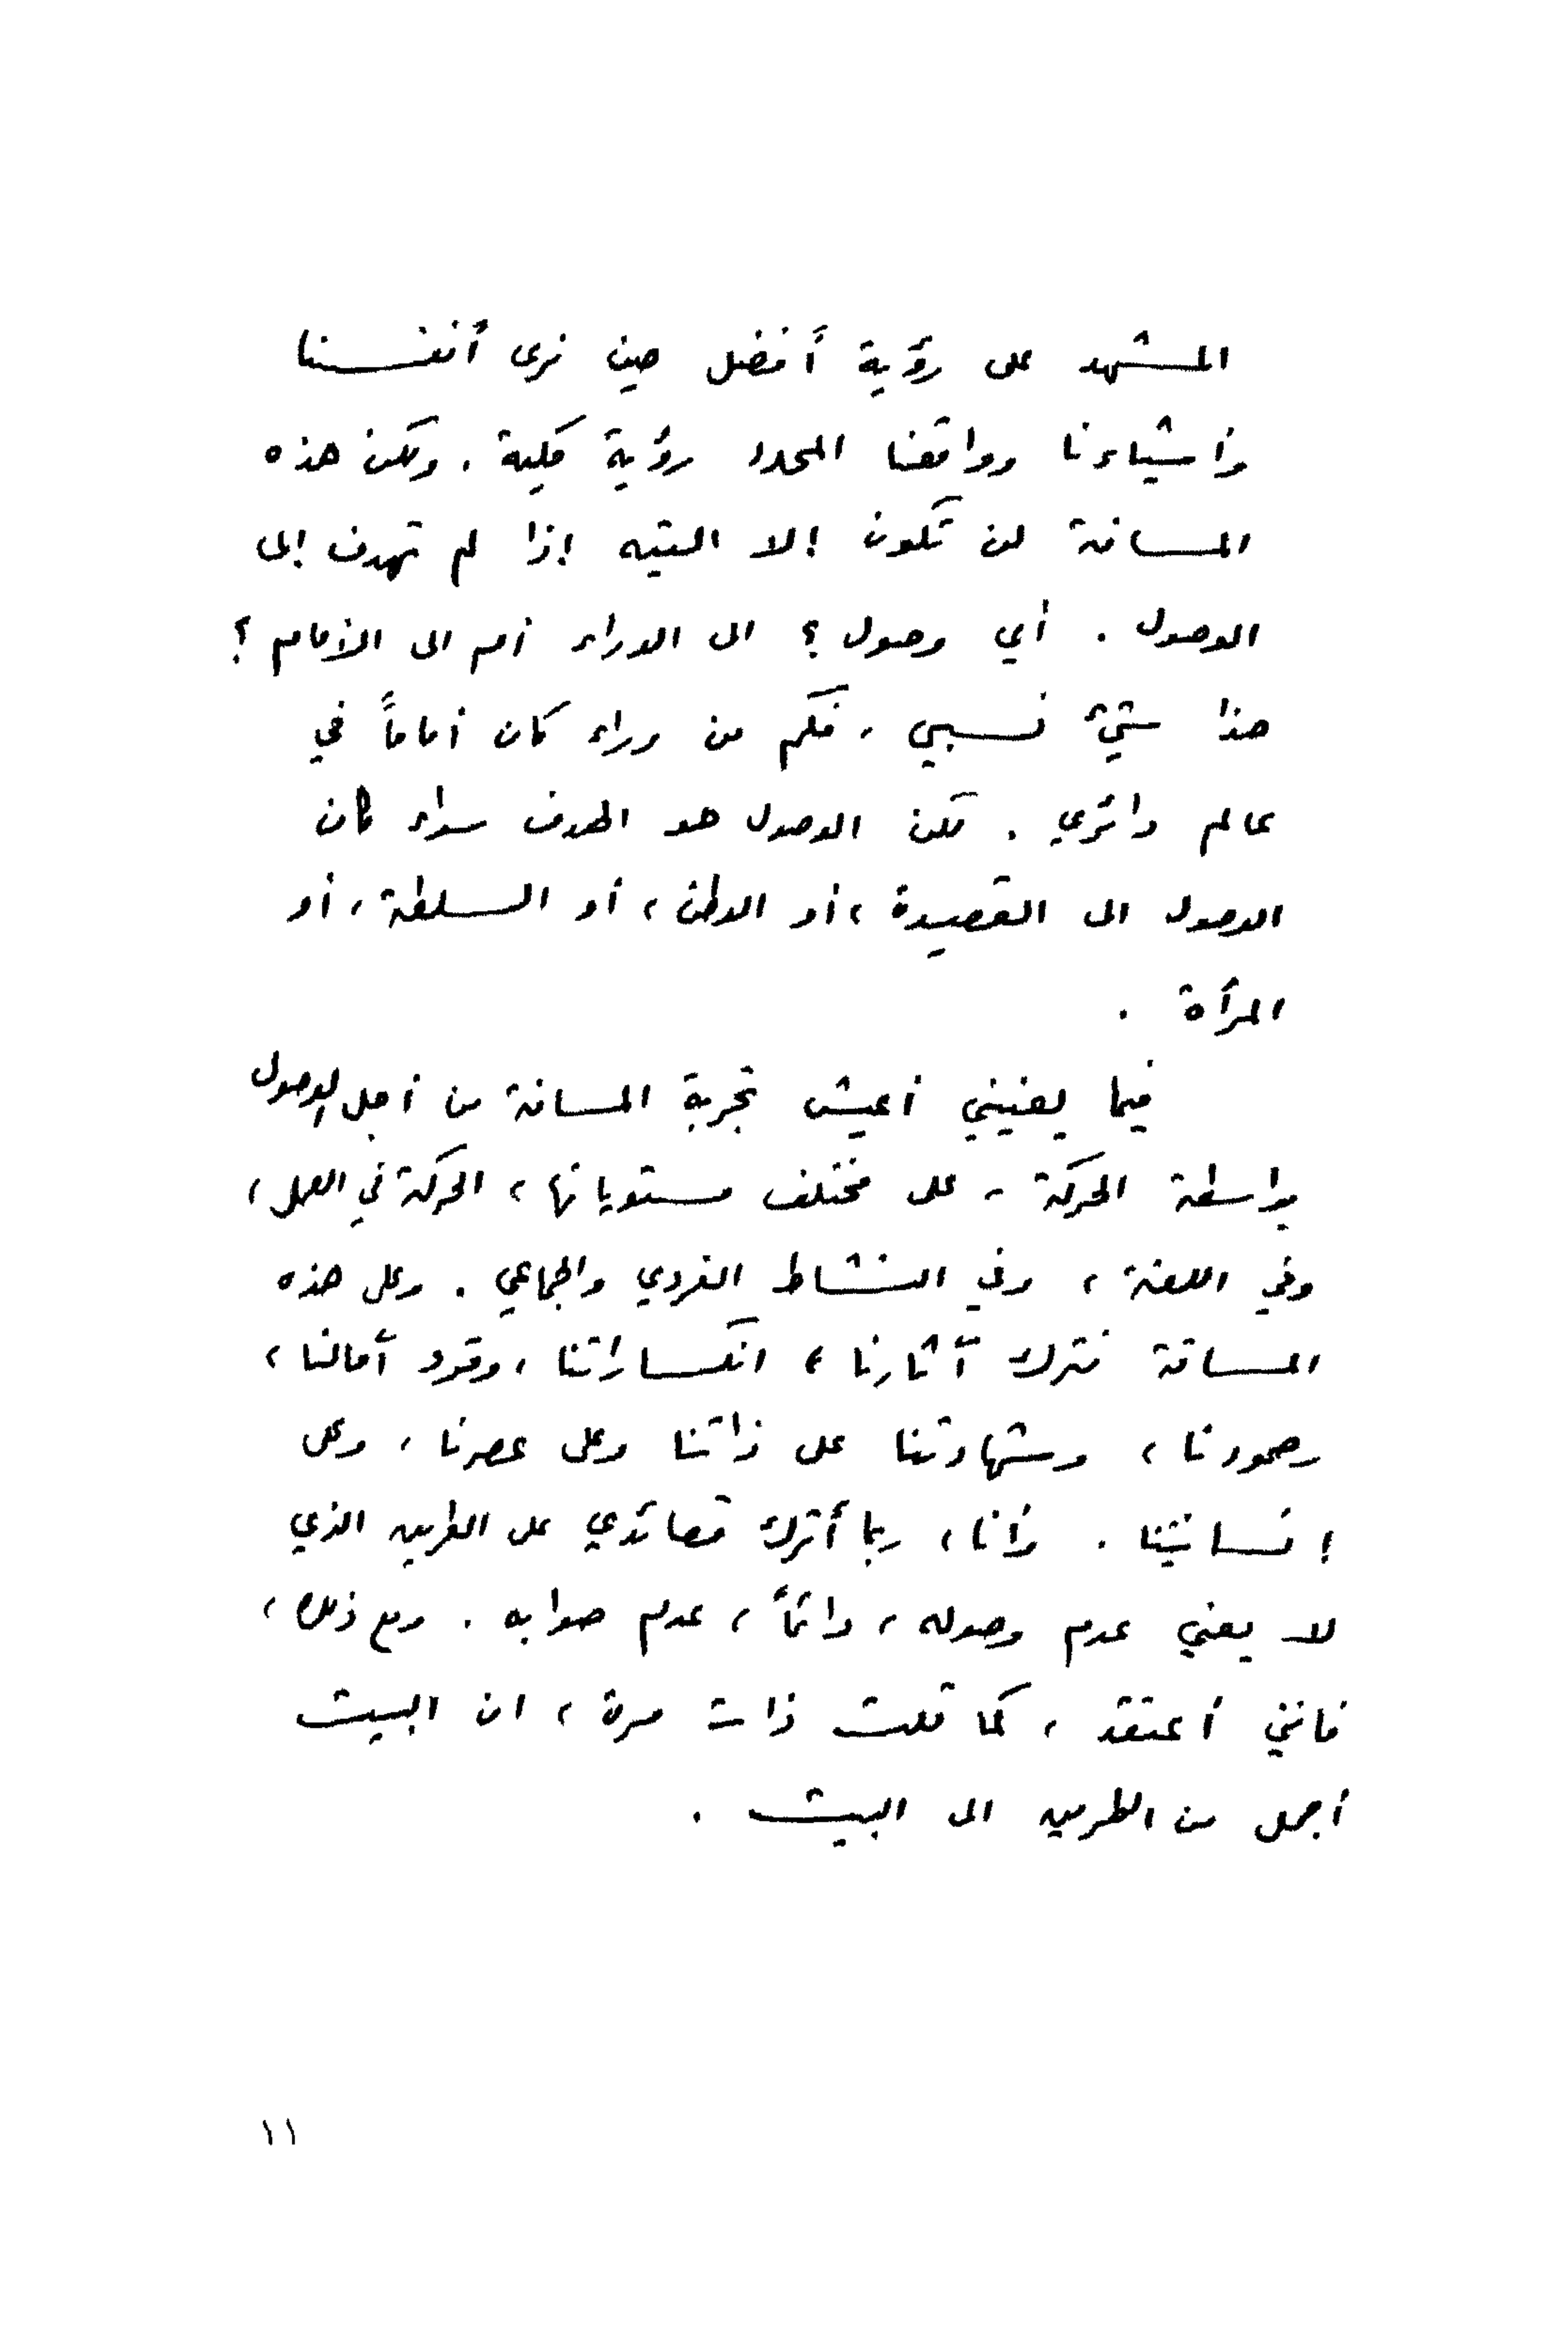 المشهد على رؤية أفضل حين نرى أنفسنا
وأشياءنا وواقعنا المحدد رؤية كلية . ولكن هذه
المسافة لن تكون إلا التيه إذا لم تهدف إلى
الوصول . أي وصول ؟ الى الوراء أم الى الأمام ؟
هذا شيء نسبي ، فكم من وراء كان أماماً في
عالم دائري . لكن الوصول هو الهدف سواء كان
الوصول الى القصيدة ، أو الوطن ، أو السلطة ، أو
المرأة .
فيما يعنيني أعيش تجربة المسافة من أجل الوصول
بواسطة الحركة - على مختلف مستوياتها ، الحركة في العمل ،
وفي اللغة ، وفي النشاط الفردي والجماعي . وعلى هذه
المسافة نترك آثارنا ، انكساراتنا ، وقود آمالنا ،
وصمودنا ، وشهادتنا على ذاتنا وعلى عصرنا ، وعلى
إنسانيتنا . وأنا ، ربما أترك قصائدي على الطريق الذي
لا يعني عدم وصوله ، دائماً ، عدم صوابه . ومع ذلك ،
فانني أعتقد ، كما قلت ذات مرة ، ان البيت
أجمل من الطريق الى البيت .
١١